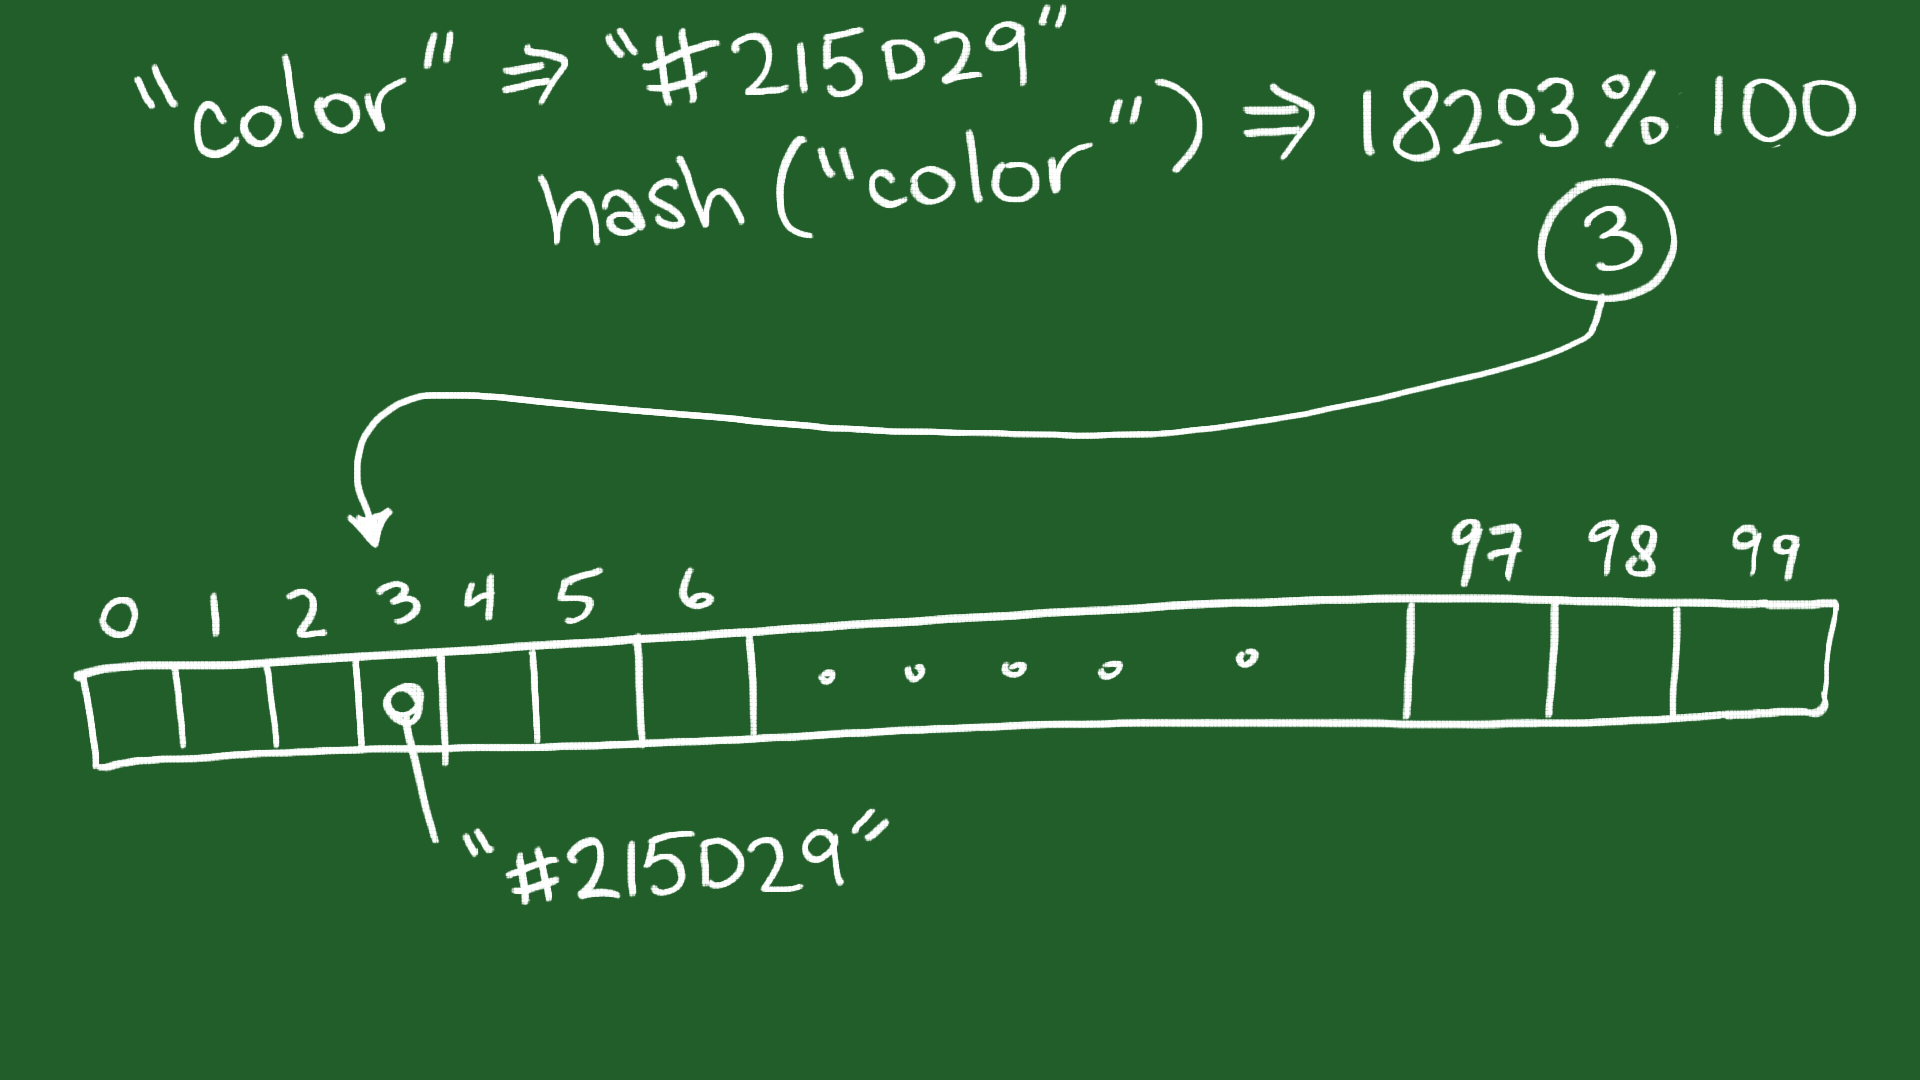 "color" ⇒ "#215D29"
hash("color") ⇒ 18203 % 100
3
0 1 2 3 4 5 6 97 98 99
"#215D29"